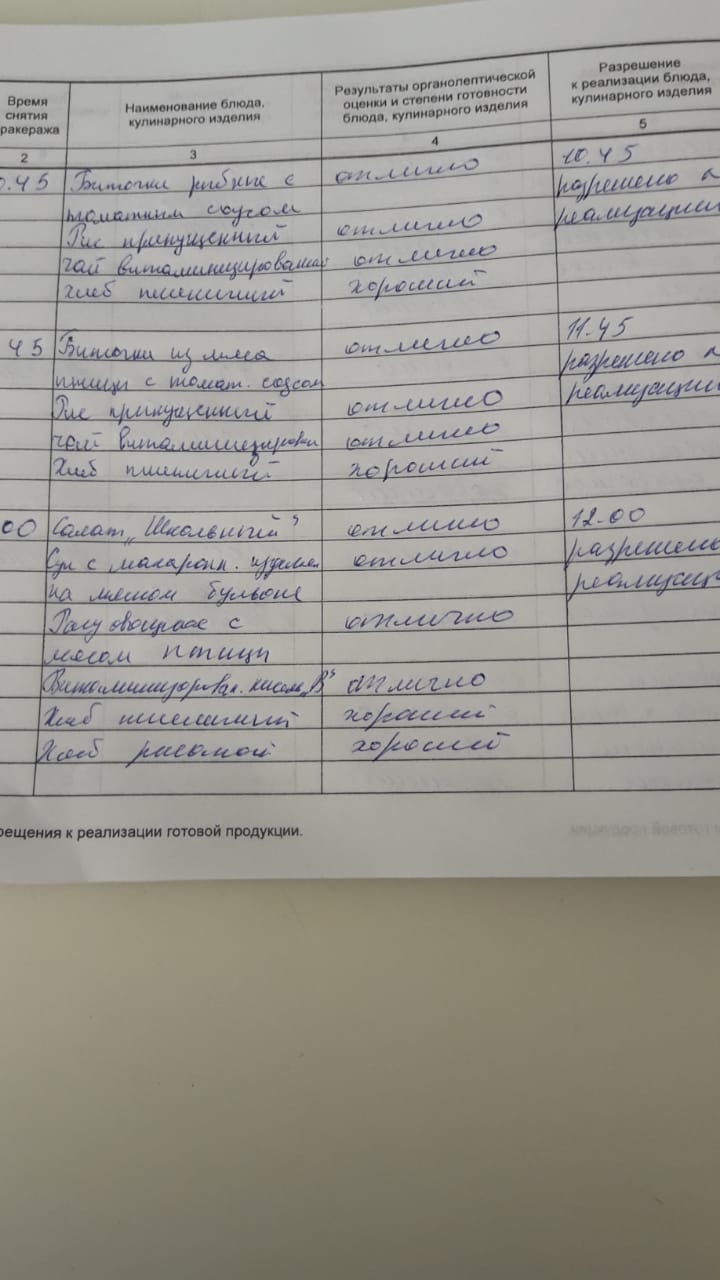 Время
снятия
ракеража
Наименование блюда,
кулинарного изделия
Результаты органолептической
оценки и степени готовности
блюда, кулинарного изделия
Разрешение
к реализации блюда,
кулинарного изделия
2 3 4 5
0.45 Биточки рыбные с отлично 10.45
томатным соусом разрешено
Рис припущенный отлично реализации
чай витаминизированный отлично
хлеб пшеничный хороший
45 Биточки из мяса отлично 11.45
птицы с томат. соусом разрешено
Рис припущенный отлично реализации
чай витаминизирован отлично
Хлеб пшеничный хороший
00 Салат „Школьный" отлично 12.00
Суп с макарон. изделием отлично разрешено
на мясном бульоне реализаци
Рагу овощное с отлично
мясом птицы
Витаминизирован. кисель „В" отлично
Хлеб пшеничный хороший
Хлеб ржаной хороший
рещения к реализации готовой продукции.